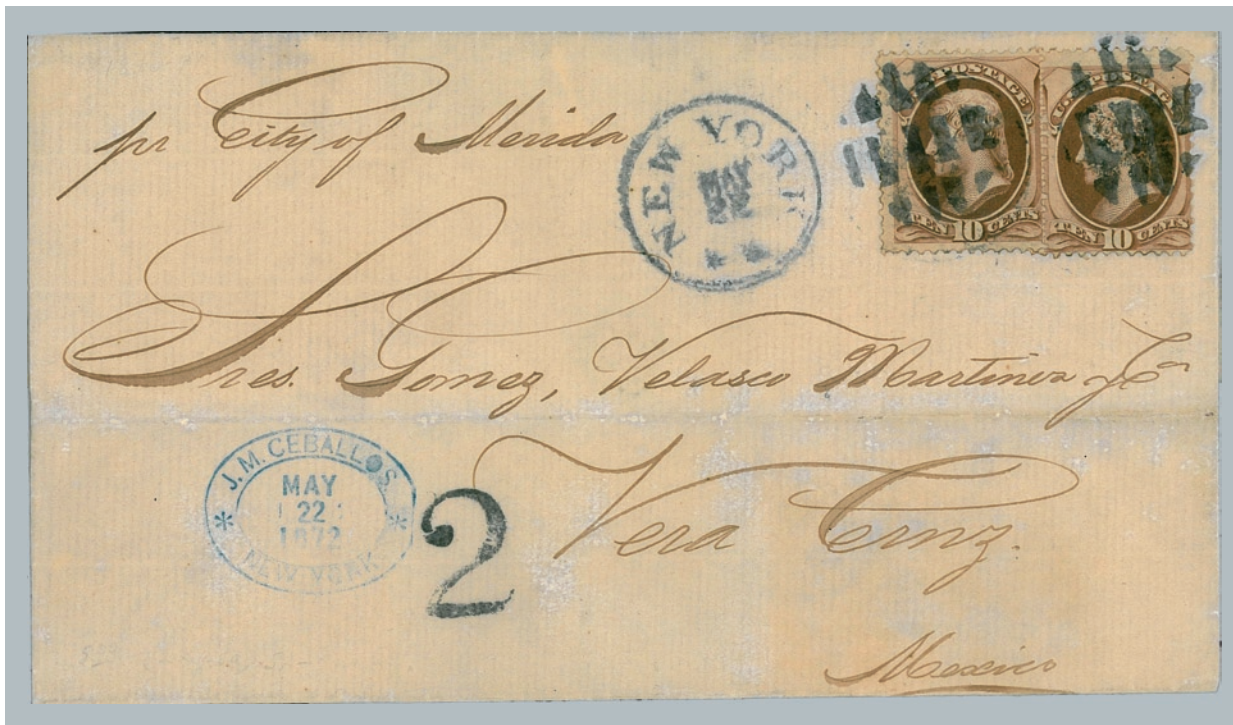 pr City of Merida
NEW YORK
MAY
22
U.S. POSTAGE
TEN 10 CENTS
U.S. POSTAGE
TEN 10 CENTS
Sres. Gomez, Velasco Martinez y Ca
J. M. CEBALLOS
MAY
22
1872
NEW YORK
2
Vera Cruz.
Mexico